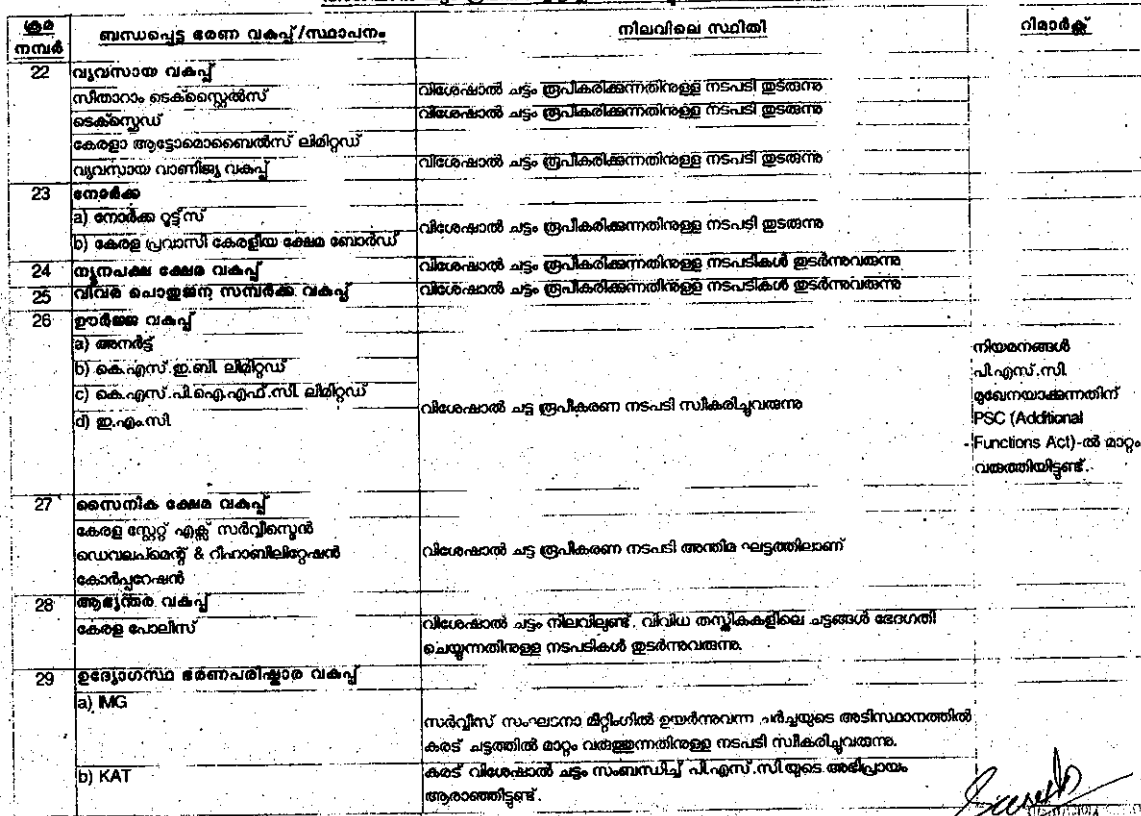 ക്രമ നമ്പർ ബന്ധപ്പെട്ട ഭരണ വകുപ്പ്/സ്ഥാപനം നിലവിലെ സ്ഥിതി റിമാർക്സ്
22 വ്യവസായ വകുപ്പ്
സീതാറാം ടെക്സ്റ്റൈൽസ് വിശേഷാൽ ചട്ടം രൂപീകരിക്കുന്നതിനുള്ള നടപടി തുടരുന്നു
ടെക്സ്റ്റെഡ് വിശേഷാൽ ചട്ടം രൂപീകരിക്കുന്നതിനുള്ള നടപടി തുടരുന്നു
കേരളാ ആട്ടോമൊബൈൽസ് ലിമിറ്റഡ്
വ്യവസായ വാണിജ്യ വകുപ്പ് വിശേഷാൽ ചട്ടം രൂപീകരിക്കുന്നതിനുള്ള നടപടി തുടരുന്നു
23 നോർക്ക
a) നോർക്ക റൂട്ട്സ് വിശേഷാൽ ചട്ടം രൂപീകരിക്കുന്നതിനുള്ള നടപടി തുടരുന്നു
b) കേരള പ്രവാസി കേരളീയ ക്ഷേമ ബോർഡ്
24 ന്യൂനപക്ഷ ക്ഷേമ വകുപ്പ് വിശേഷാൽ ചട്ടം രൂപീകരിക്കുന്നതിനുള്ള നടപടികൾ തുടർന്നുവരുന്നു
25 വിവര പൊതുജന സമ്പർക്ക വകുപ്പ് വിശേഷാൽ ചട്ടം രൂപീകരിക്കുന്നതിനുള്ള നടപടികൾ തുടർന്നുവരുന്നു
26 ഊർജ്ജ വകുപ്പ്
a) അനർട്ട്
b) കെ.എസ്.ഇ.ബി. ലിമിറ്റഡ്
c) കെ.എസ്.പി.ഐ.എഫ്.സി. ലിമിറ്റഡ്
d) ഇ.എം.സി.
വിശേഷാൽ ചട്ട രൂപീകരണ നടപടി സ്വീകരിച്ചുവരുന്നു
നിയമനങ്ങൾ
പി.എസ്.സി.
മുഖേനയാക്കുന്നതിന്
PSC (Additional
Functions Act)-ൽ മാറ്റം
വരുത്തിയിട്ടുണ്ട്.
27 സൈനിക ക്ഷേമ വകുപ്പ്
കേരള സ്റ്റേറ്റ് എക്സ് സർവ്വീസ്മെൻ
ഡെവലപ്മെന്റ് & റിഹാബിലിറ്റേഷൻ
കോർപ്പറേഷൻ
വിശേഷാൽ ചട്ട രൂപീകരണ നടപടി അന്തിമ ഘട്ടത്തിലാണ്
28 ആഭ്യന്തര വകുപ്പ്
കേരള പോലീസ്
വിശേഷാൽ ചട്ടം നിലവിലുണ്ട്. വിവിധ തസ്തികകളിലെ ചട്ടങ്ങൾ ഭേദഗതി
ചെയ്യുന്നതിനുള്ള നടപടികൾ തുടർന്നുവരുന്നു.
29 ഉദ്യോഗസ്ഥ ഭരണപരിഷ്കാര വകുപ്പ്
a) IMG
സർവ്വീസ് സംഘടനാ മീറ്റിംഗിൽ ഉയർന്നുവന്ന ചർച്ചയുടെ അടിസ്ഥാനത്തിൽ
കരട് ചട്ടത്തിൽ മാറ്റം വരുത്തുന്നതിനുള്ള നടപടി സ്വീകരിച്ചുവരുന്നു.
b) KAT
കരട് വിശേഷാൽ ചട്ടം സംബന്ധിച്ച് പി.എസ്.സി.യുടെ അഭിപ്രായം
ആരാഞ്ഞിട്ടുണ്ട്.